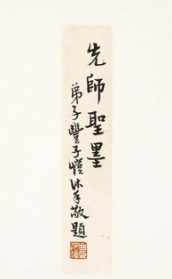 先師聖墨
弟子豐子愷沐手敬題